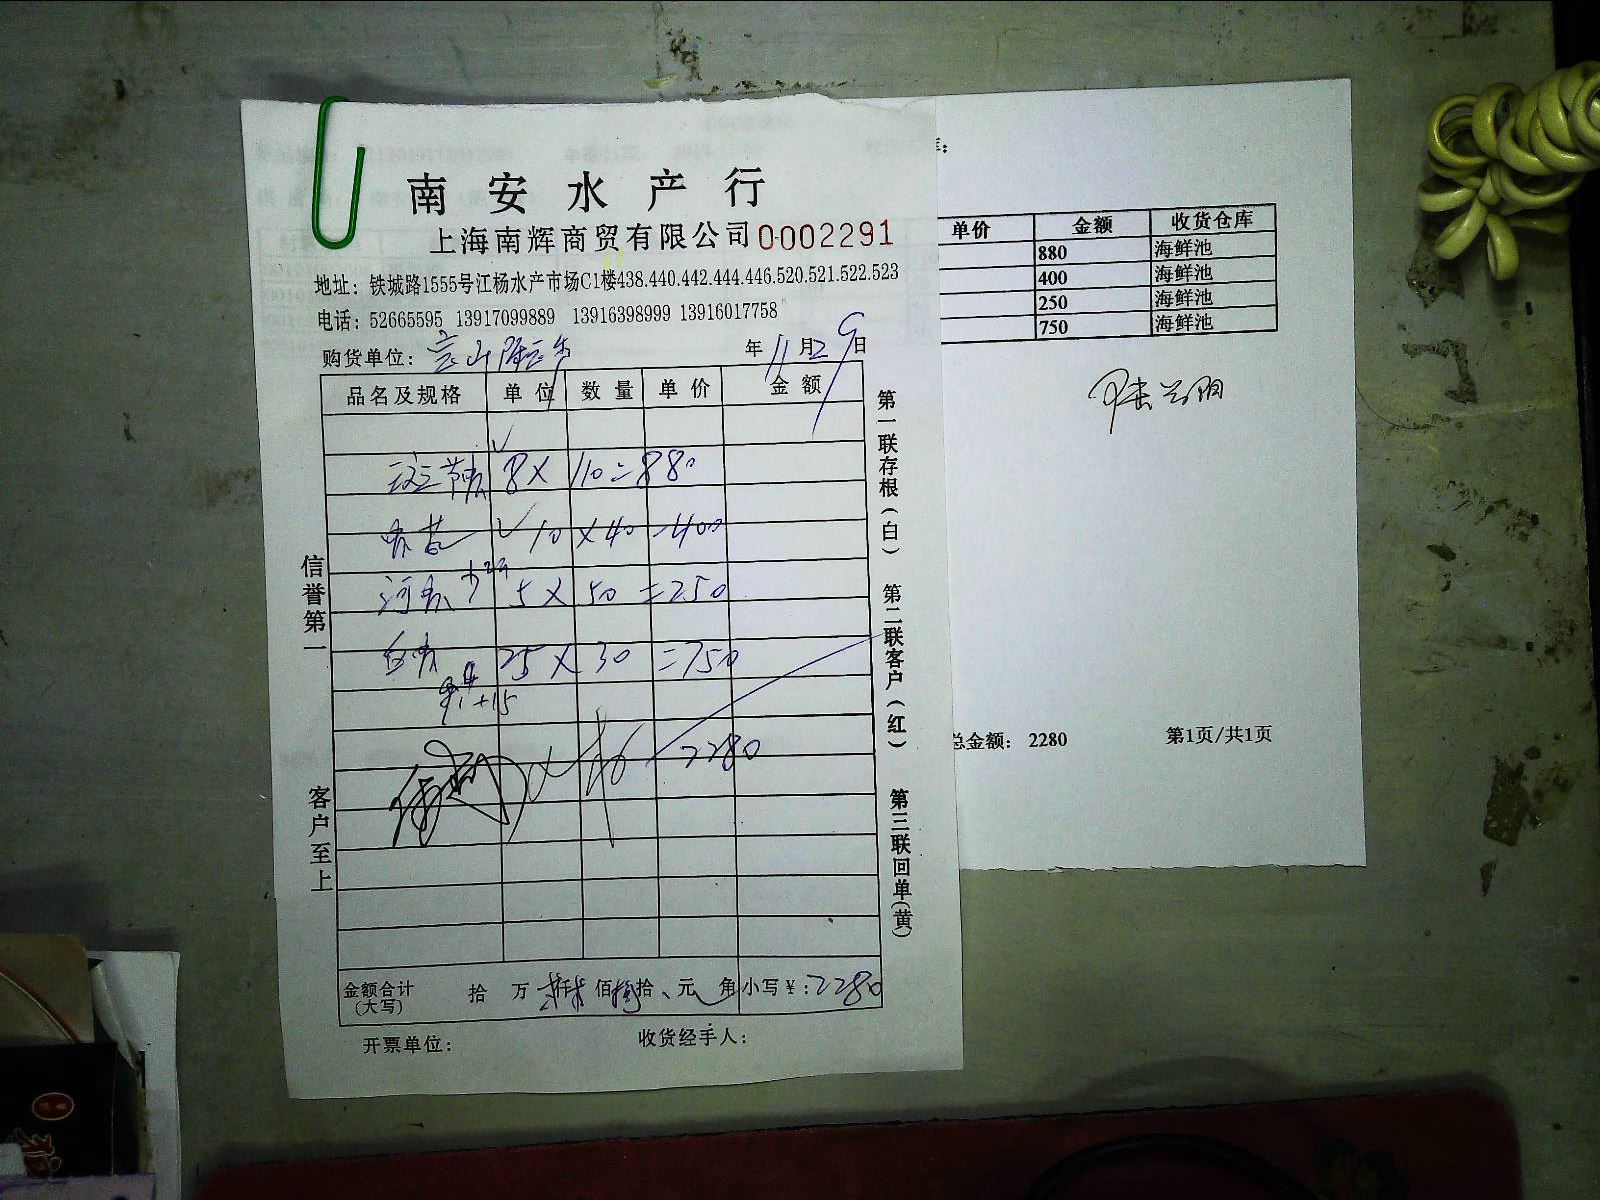 南安水产行
上海南辉商贸有限公司 0002291
地址：铁城路1555号江杨水产市场C1楼438.440.442.444.446.520.521.522.523
电话：52665595 13917099889 13916398999 13916017758
购货单位：宝山 年11月29日
品名及规格 单位 数量 单价 金额
8×110=880
10×40=400
河虾 5×50=250
白虾 25×30=750
+15
2280
金额合计(大写) 拾 万 仟 佰 拾 元 角 小写￥：2280
开票单位： 收货经手人：
信誉第一
客户至上
第一联存根(白)
第二联客户(红)
第三联回单(黄)
单价 金额 收货仓库
880 海鲜池
400 海鲜池
250 海鲜池
750 海鲜池
总金额： 2280 第1页/共1页